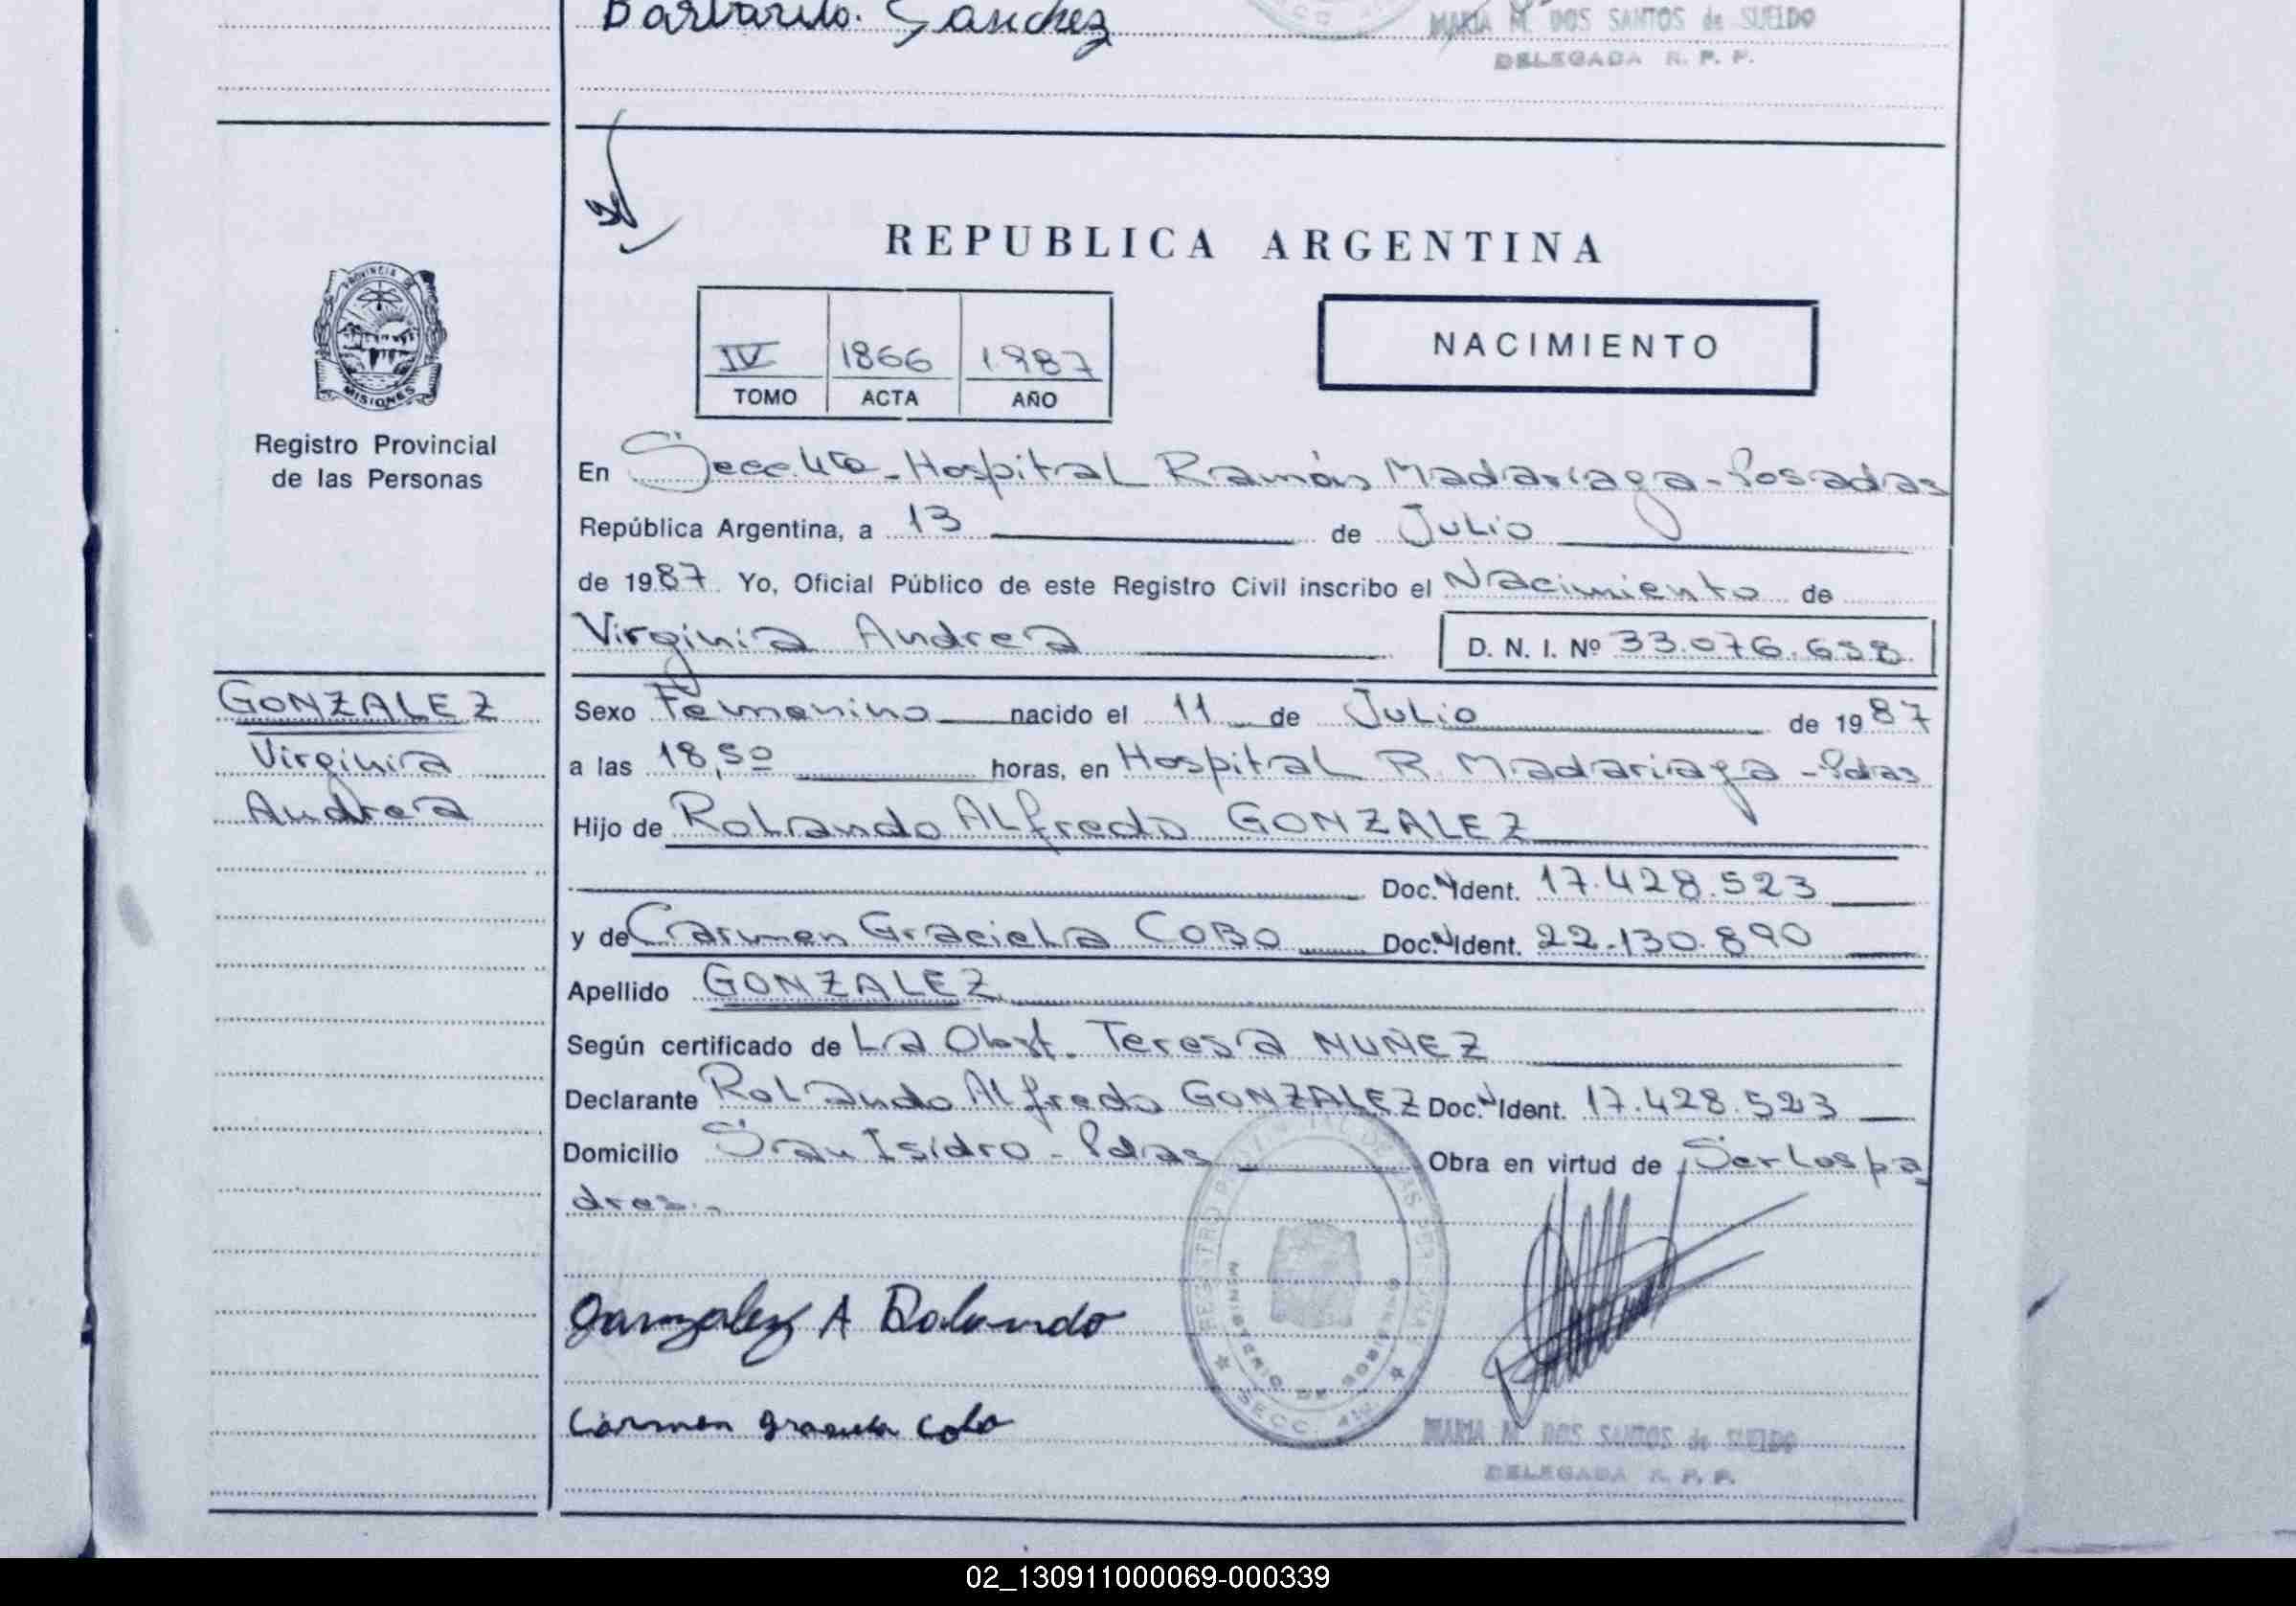 Barbarito. Sanchez
MARIA M. DOS SANTOS de SUELDO
DELEGADA R. P. P.
PROVINCIA DE
MISIONES
Registro Provincial
de las Personas
REPUBLICA ARGENTINA
IV 1866 1.987
TOMO ACTA AÑO
NACIMIENTO
En Secc. 4ta - Hospital Ramón Madariaga - Posadas
República Argentina, a 13 de Julio
de 1987. Yo, Oficial Público de este Registro Civil inscribo el Nacimiento de
Virginia Andrea D. N. I. Nº 33.076.638
GONZALEZ
Virginia
Andrea
Sexo Femenino nacido el 11 de Julio de 1987
a las 18,50 horas, en Hospital R. Madariaga - Pdas
Hijo de Rolando Alfredo GONZALEZ
Doc. N Ident. 17.428.523
y de Carmen Graciela COBO Doc. N Ident. 22.130.890
Apellido GONZALEZ
Según certificado de La Obst. Teresa NUÑEZ
Declarante Rolando Alfredo GONZALEZ Doc. N Ident. 17.428.523
Domicilio San Isidro - Pdas Obra en virtud de Ser los pa
dres.-
Gonzalez A Rolando
Carmen Graciela Cobo
MINISTERIO DE GOBIERNO
SECC. 4ta.
MARIA M. DOS SANTOS de SUELDO
DELEGADA R. P. P.
02_130911000069-000339